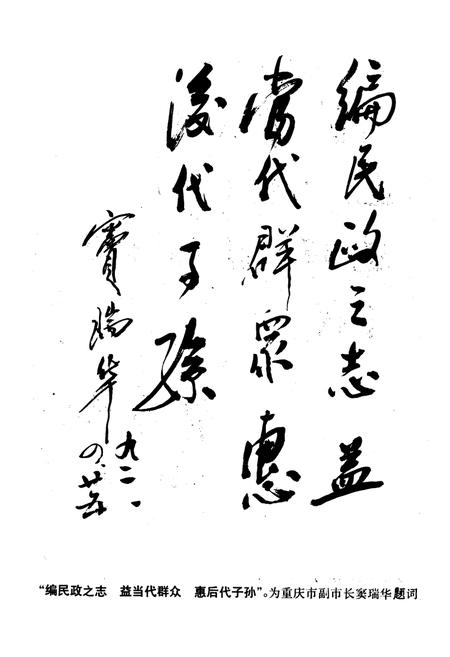 编民政之志益
當代群眾惠
後代子孫
竇瑞华
九二
“编民政之志　益当代群众　惠后代子孙”。为重庆市副市长窦瑞华题词